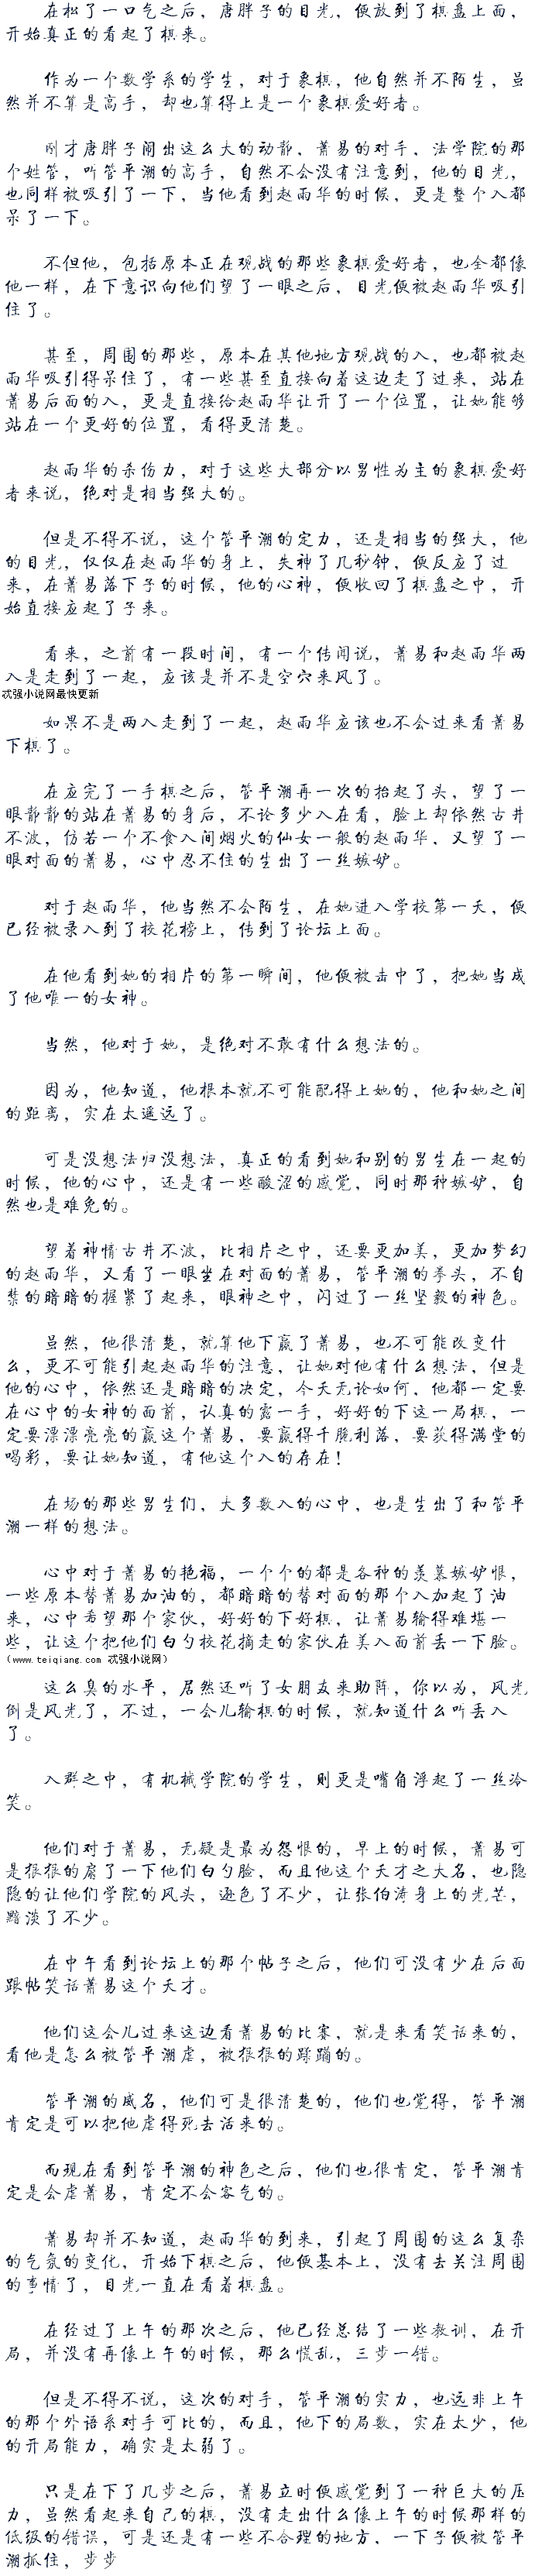 在松了一口气之后，唐胖子的目光，便放到了棋盘上面，
开始真正的看起了棋来。
作为一个数学系的学生，对于象棋，他自然并不陌生，虽
然并不算是高手，却也算得上是一个象棋爱好者。
刚才唐胖子闹出这么大的动静，萧易的对手，法学院的那
个姓管，听管平潮的高手，自然不会没有注意到，他的目光，
也同样被吸引了一下，当他看到赵雨华的时候，更是整个人都
呆了一下。
不但他，包括原本正在观战的那些象棋爱好者，也全都像
他一样，在下意识向他们望了一眼之后，目光便被赵雨华吸引
住了。
甚至，周围的那些，原本在其他地方观战的人，也都被赵
雨华吸引得呆住了，有一些甚至直接向着这边走了过来，站在
萧易后面的人，更是直接给赵雨华让开了一个位置，让她能够
站在一个更好的位置，看得更清楚。
赵雨华的杀伤力，对于这些大部分以男性为主的象棋爱好
者来说，绝对是相当强大的。
但是不得不说，这个管平潮的定力，还是相当的强大，他
的目光，仅仅在赵雨华的身上，失神了几秒钟，便反应了过
来，在萧易落下子的时候，他的心神，便收回了棋盘之中，开
始直接应起了子来。
看来，之前有一段时间，有一个传闻说，萧易和赵雨华两
人是走到了一起，应该是并不是空穴来风了。
忒强小说网最快更新
如果不是两人走到了一起，赵雨华应该也不会过来看萧易
下棋了。
在应完了一手棋之后，管平潮再一次的抬起了头，望了一
眼静静的站在萧易的身后，不论多少人在看，脸上却依然古井
不波，仿若一个不食人间烟火的仙女一般的赵雨华，又望了一
眼对面的萧易，心中忍不住的生出了一丝嫉妒。
对于赵雨华，他当然不会陌生，在她进入学校第一天，便
已经被录入到了校花榜上，传到了论坛上面。
在他看到她的相片的第一瞬间，他便被击中了，把她当成
了他唯一的女神。
当然，他对于她，是绝对不敢有什么想法的。
因为，他知道，他根本就不可能配得上她的，他和她之间
的距离，实在太遥远了。
可是没想法归没想法，真正的看到她和别的男生在一起的
时候，他的心中，还是有一些酸涩的感觉，同时那种嫉妒，自
然也是难免的。
望着神情古井不波，比相片之中，还要更加美，更加梦幻
的赵雨华，又看了一眼坐在对面的萧易，管平潮的拳头，不自
禁的暗暗的握紧了起来，眼神之中，闪过了一丝坚毅的神色。
虽然，他很清楚，就算他下赢了萧易，也不可能改变什
么，更不可能引起赵雨华的注意，让她对他有什么想法，但是
他的心中，依然还是暗暗的决定，今天无论如何，他都一定要
在心中的女神的面前，认真的露一手，好好的下这一局棋，一
定要漂漂亮亮的赢这个萧易，要赢得干脆利落，要获得满堂的
喝彩，要让她知道，有他这个人的存在！
在场的那些男生们，大多数人的心中，也是生出了和管平
潮一样的想法。
心中对于萧易的艳福，一个个的都是各种的羡慕嫉妒恨，
一些原本替萧易加油的，都暗暗的替对面的那个人加起了油
来，心中希望那个家伙，好好的下好棋，让萧易输得难堪一
些，让这个把他们白勺校花摘走的家伙在美人面前丢一下脸。
（www.teiqiang.com 忒强小说网）
这么臭的水平，居然还听了女朋友来助阵，你以为，风光
倒是风光了，不过，一会儿输棋的时候，就知道什么听丢人
了。
人群之中，有机械学院的学生，则更是嘴角浮起了一丝冷
笑。
他们对于萧易，无疑是最为怨恨的，早上的时候，萧易可
是狠狠的扇了一下他们白勺脸，而且他这个天才之大名，也隐
隐的让他们学院的风头，逊色了不少，让张伯涛身上的光芒，
黯淡了不少。
在中午看到论坛上的那个帖子之后，他们可没有少在后面
跟帖笑话萧易这个天才。
他们这会儿过来这边看萧易的比赛，就是来看笑话来的，
看他是怎么被管平潮虐，被狠狠的蹂躏的。
管平潮的威名，他们可是很清楚的，他们也觉得，管平潮
肯定是可以把他虐得死去活来的。
而现在看到管平潮的神色之后，他们也很肯定，管平潮肯
定是会虐萧易，肯定不会客气的。
萧易却并不知道，赵雨华的到来，引起了周围的这么复杂
的气氛的变化，开始下棋之后，他便基本上，没有去关注周围
的事情了，目光一直在看着棋盘。
在经过了上午的那次之后，他已经总结了一些教训，在开
局，并没有再像上午的时候，那么慌乱，三步一错。
但是不得不说，这次的对手，管平潮的实力，也远非上午
的那个外语系对手可比的，而且，他下的局数，实在太少，他
的开局能力，确实是太弱了。
只是在下了几步之后，萧易立时便感觉到了一种巨大的压
力，虽然看起来自己的棋，没有走出什么像上午的时候那样的
低级的错误，可是还是有一些不合理的地方，一下子便被管平
潮抓住，步步